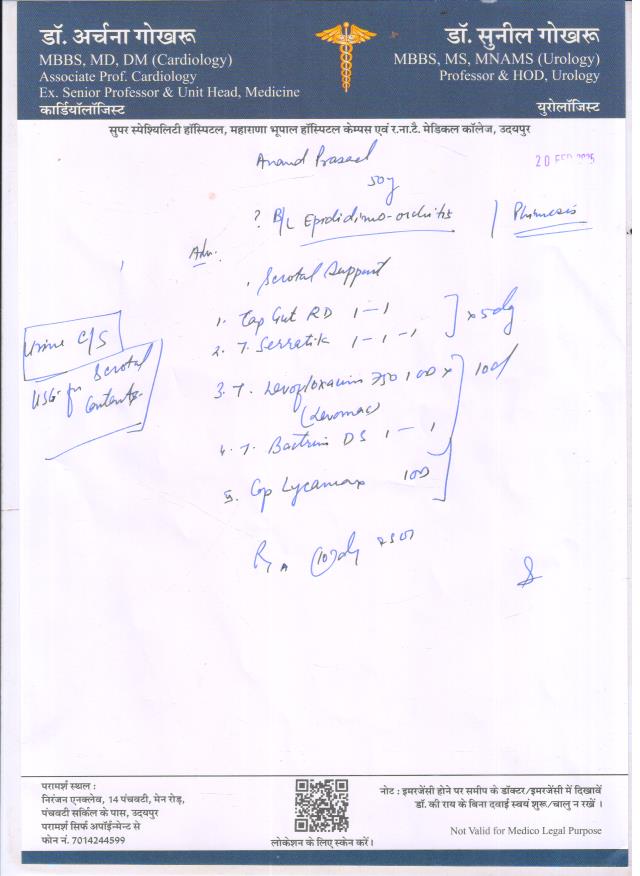 डॉ. अर्चना गोखरू
MBBS, MD, DM (Cardiology)
Associate Prof. Cardiology
Ex. Senior Professor & Unit Head, Medicine
कार्डियॉलॉजिस्ट
डॉ. सुनील गोखरू
MBBS, MS, MNAMS (Urology)
Professor & HOD, Urology
युरोलॉजिस्ट
सुपर स्पेश्यिलिटी हॉस्पिटल, महाराणा भूपाल हॉस्पिटल केम्पस एवं र.ना.टै. मेडिकल कॉलेज, उदयपुर
Anand Prasad
20 FEB 2025
50y
? B/L Epididimo-orchitis | Phimosis
Adv.
Scrotal Support
1. Cap Gut RD 1-1
2. T. Serratik 1-1-1 ] x 5 dy
Urine C/S
USG for Scrotal Contents
3. T. Levofloxacin 750 1 OD x 10d
(Levomac)
4. T. Bactrim DS 1-1
5. Cap Lycamax 1OD
परामर्श स्थल :
निरंजन एनक्लेव, 14 पंचवटी, मेन रोड़,
पंचवटी सर्किल के पास, उदयपुर
परामर्श सिर्फ अपॉईन्मेन्ट से
फोन नं. 7014244599
लोकेशन के लिए स्केन करें।
नोट : इमरजेंसी होने पर समीप के डॉक्टर/इमरजेंसी में दिखावें
डॉ. की राय के बिना दवाई स्वयं शुरू/चालु न रखें ।
Not Valid for Medico Legal Purpose